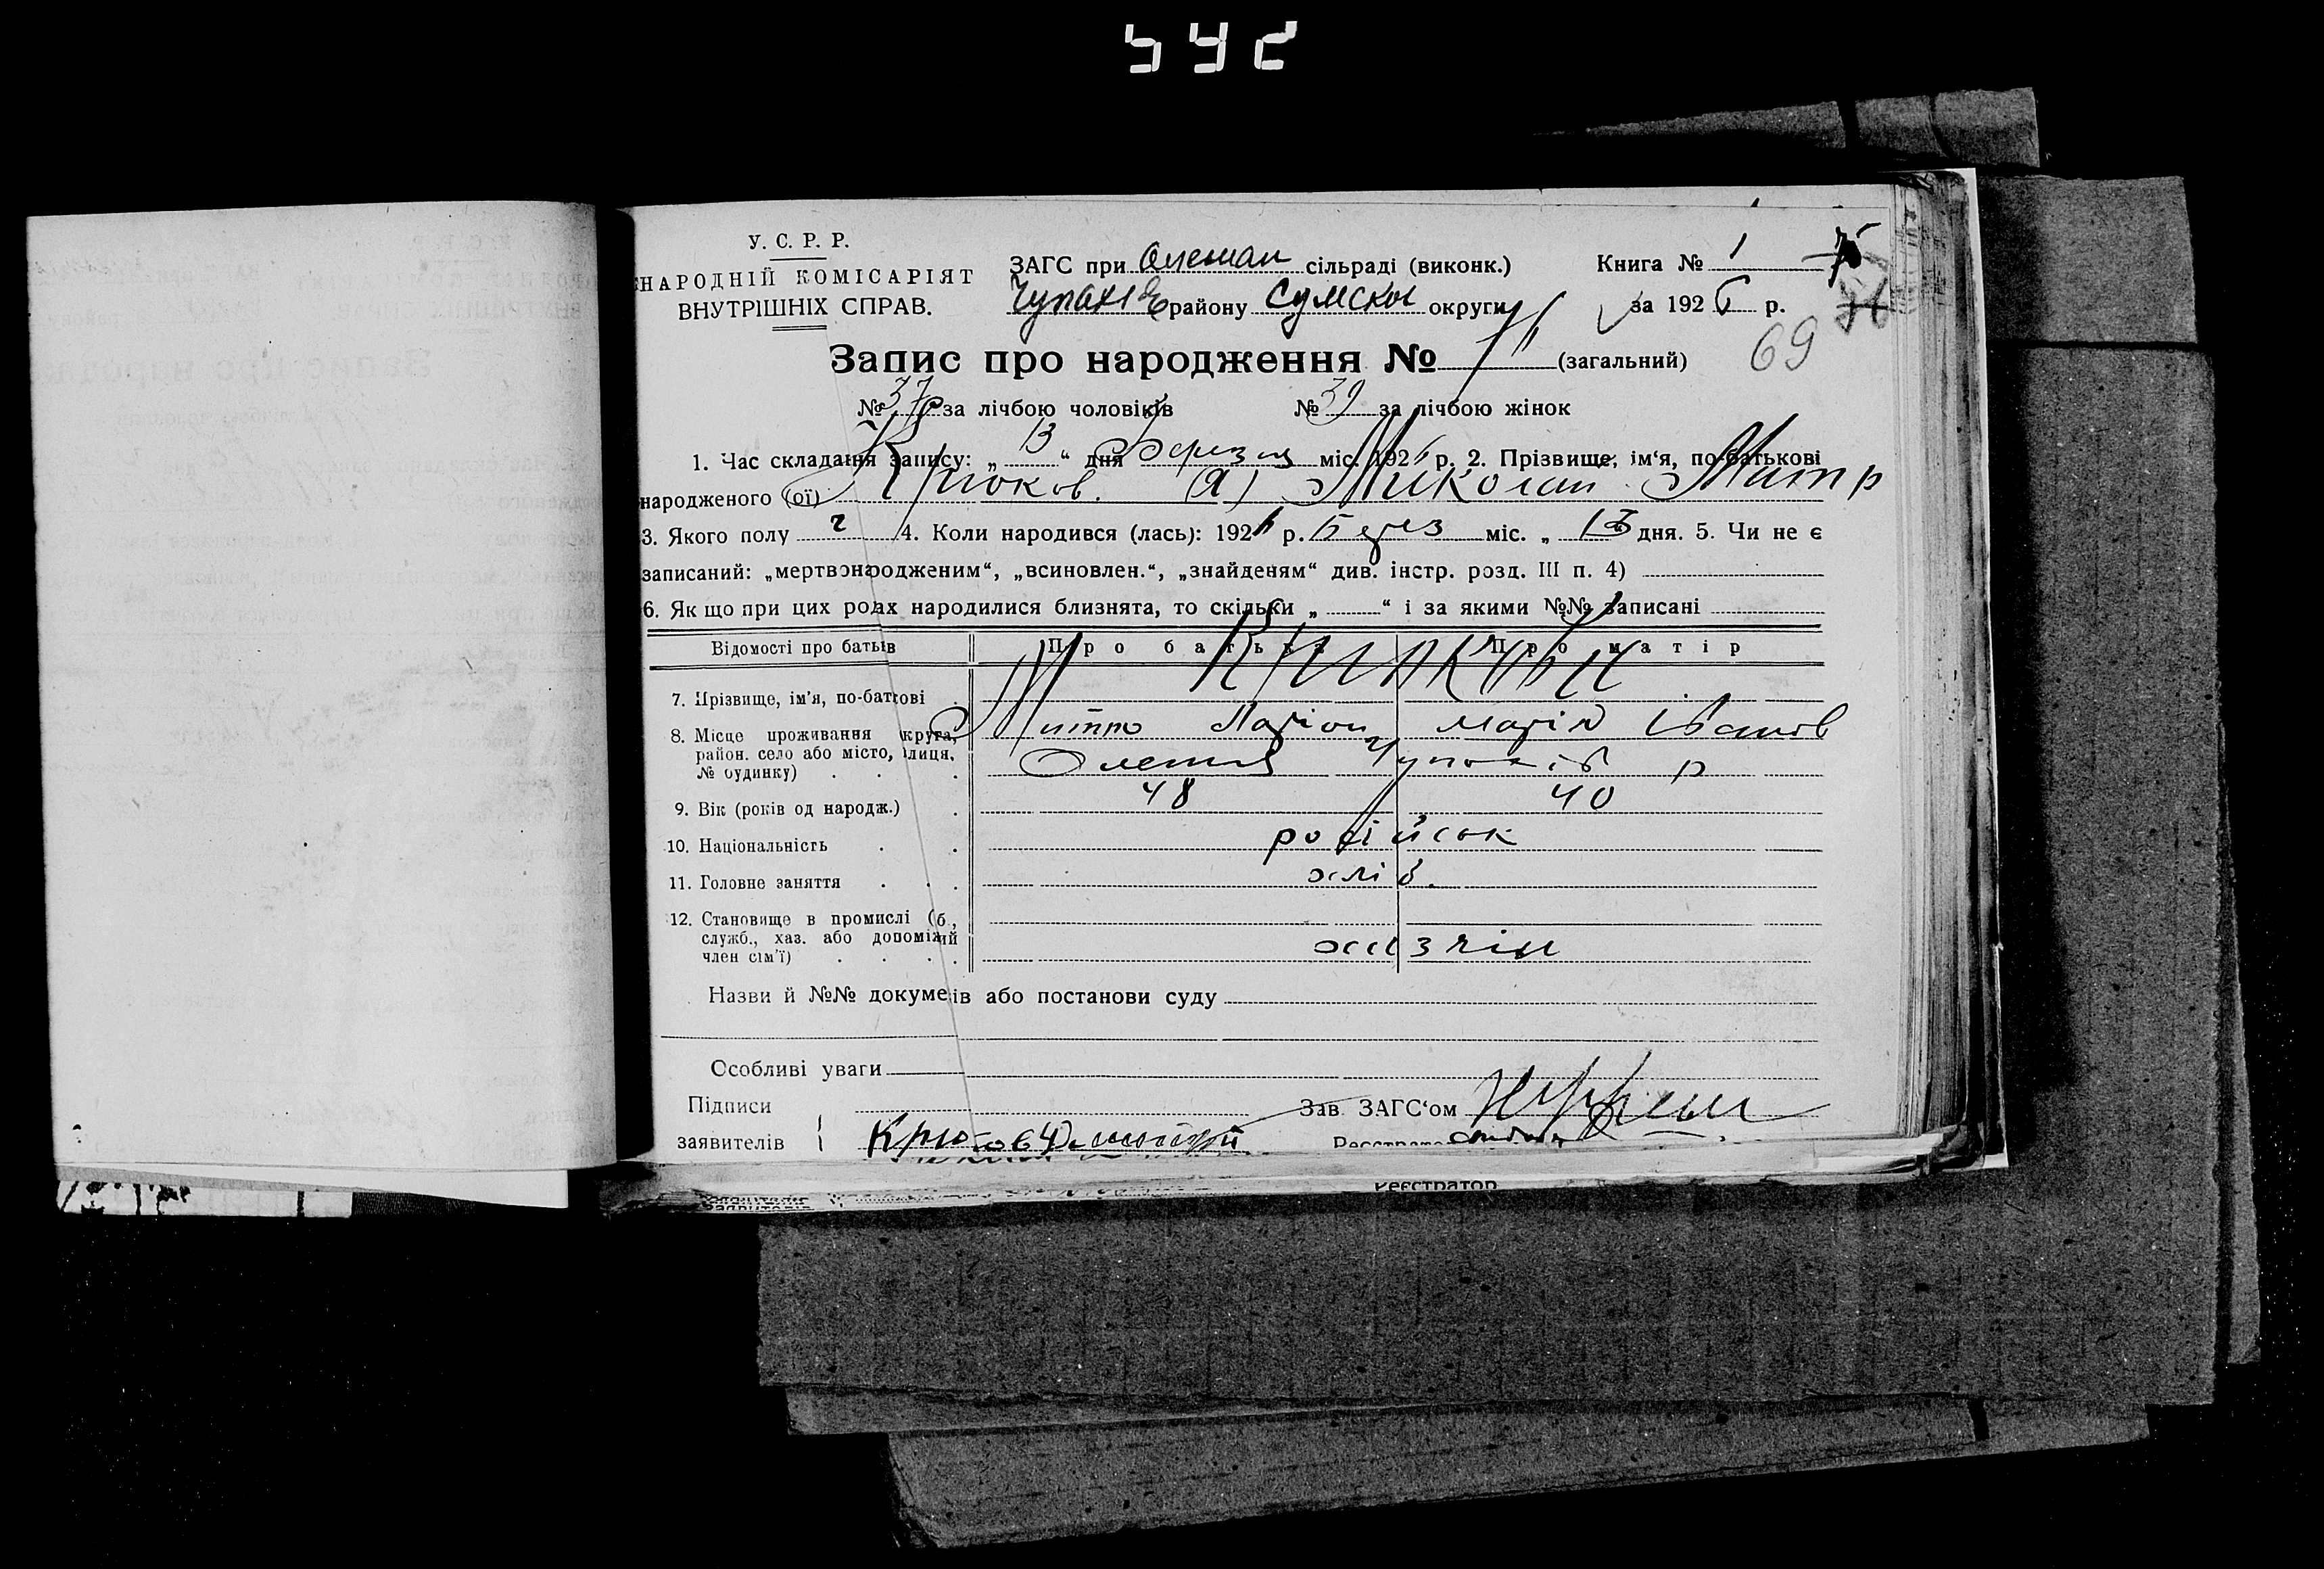 592
У. С. Р. Р.
НАРОДНІЙ КОМІСАРІЯТ
ВНУТРІШНІХ СПРАВ.
ЗАГС при Олешан сільраді (виконк.)
Чупахів району Сумскої округи
Книга № 1
за 192 р.
69
Запис про народження № (загальний)
№ 37 за лічбою чоловіків № 39 за лічбою жінок
1. Час складання запису: „ 13 “ дня Березня міс. 192 р. 2. Прізвище, ім‘я, по-батькові
народженого (ої) Крюков. (а) Миколай Митр
3. Якого полу ч 4. Коли народився (лась): 192 р. Берез міс. „ 13 дня. 5. Чи не є
записаний: „мертвонародженим“, „всиновлен.“, „знайденям“ див. інстр. розд. III п. 4)
6. Як що при цих родах народилися близнята, то скільки „ “ і за якими №№ записані
Відомості про батьків Про батька Про матір
7. Прізвище, ім’я, по-батькові Крюкови
Митро Ларіон Марія Іванов
8. Місце проживання округа,
район. село або місто, улиця,
№ будинку) Олешня Чупахів р
9. Вік (років од народж.) 48 40
10. Національність російськ
11. Головне заняття хліб.
12. Становище в промислі (б,
служб., хаз. або допоміжний
член сім’ї) хазяїн
Назви й №№ документів або постанови суду
Особливі уваги
Підписи Зав. ЗАГС‘ом
заявителів Крюков Реєстратор
Реєстратор